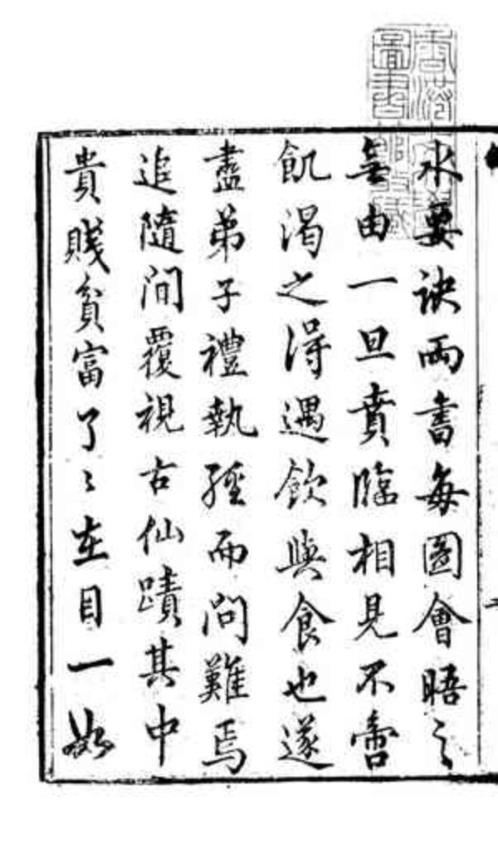 水要訣兩書每圖會晤之
無由一旦賁臨相見不啻
飢渴之得遇飲與食也遂
盡弟子禮執經而問難焉
追隨間覆視古仙蹟其中
貴賤貧富了了在目一如